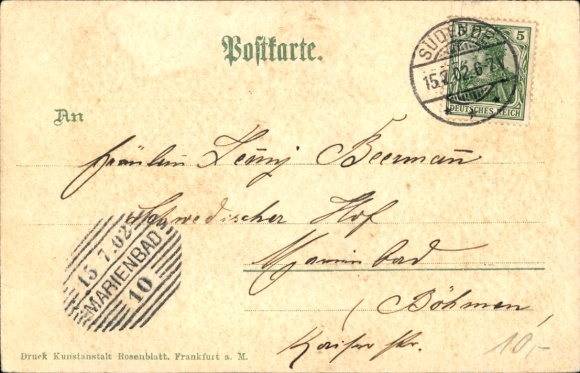 Postkarte.
SÜDENDE
15.7.02.6-7N.
5
DEUTSCHES REICH
An
Fräulein Jenny Beermann
Schwedischer Hof
Marienbad
Böhmen,
Kaiser Str.
15 7.02
MARIENBAD
10
Druck Kunstanstalt Rosenblatt, Frankfurt a. M.
10,-